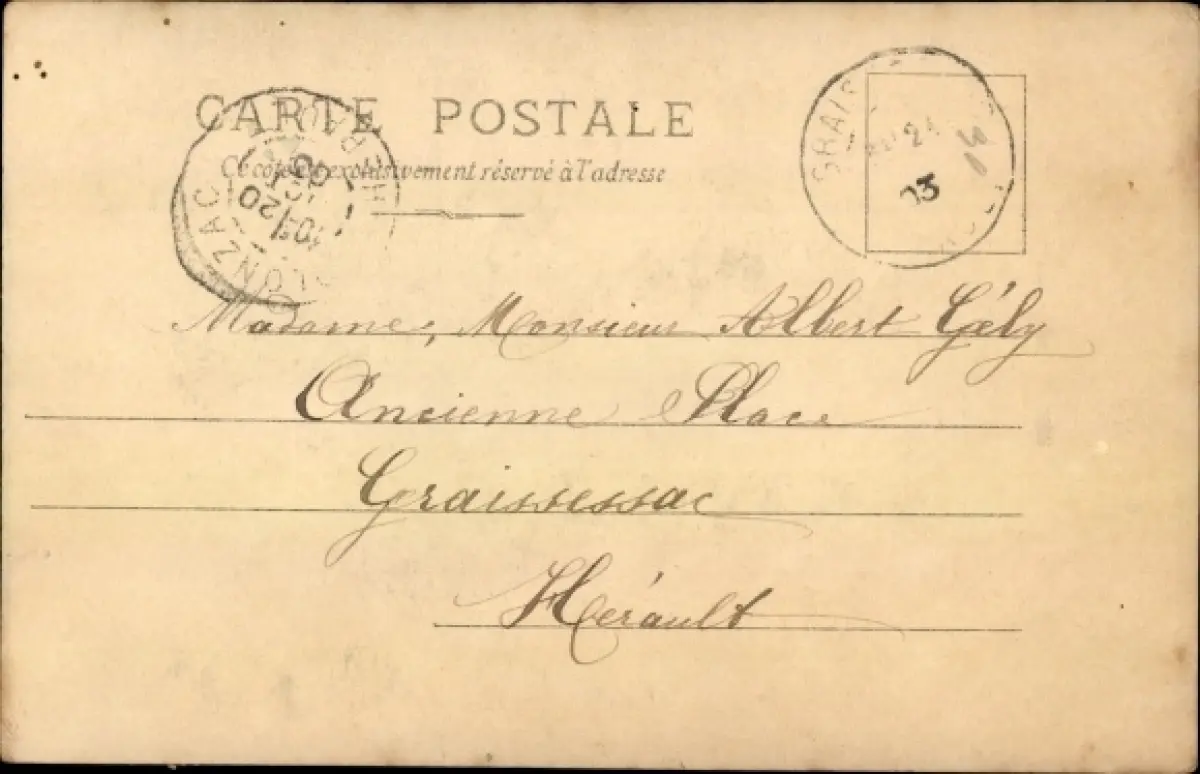 CARTE POSTALE
Ce côté est exclusivement réservé à l'adresse
OLONZAC
20
GRAIS
24
03
Madame, Monsieur Albert Gély
Ancienne Place
Graissessac
Hérault